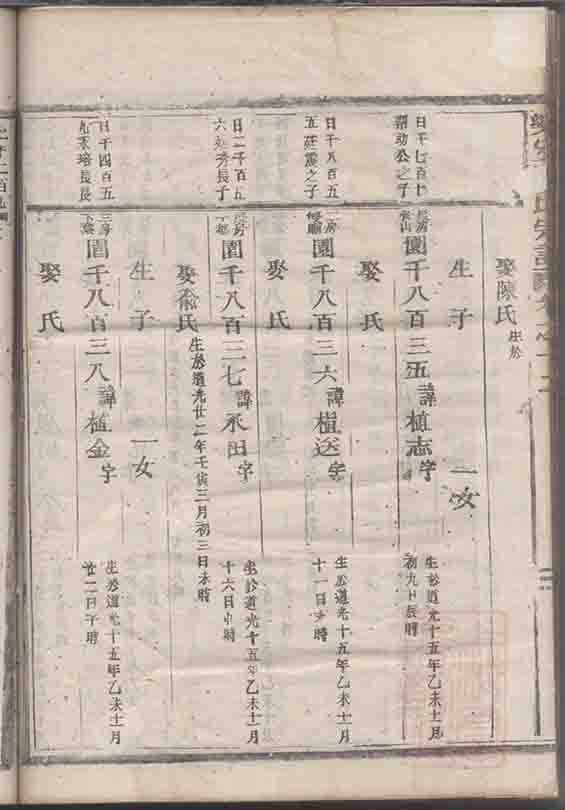 娶陳氏生於
生子 一女
日千七百十
幇助公之子
圜千八百三五諱植志字
生於道光十五年乙未十一月
初九日辰時
娶氏
日千八百五
五莊震之子
圜千八百三六諱植送字
生於道光十五年乙未十一月
十一日 時
娶氏
日一千百五
六 秀長子
圜千八百三七諱承田字
生於道光十五年乙未十一月
十六日 時
娶俞氏生於道光廿二年壬寅三月初三日未時
生子 一女
日千四百五
九 培長長
圜千八百三八諱植金字
生於道光十五年乙未十一月
廿二日子時
娶氏